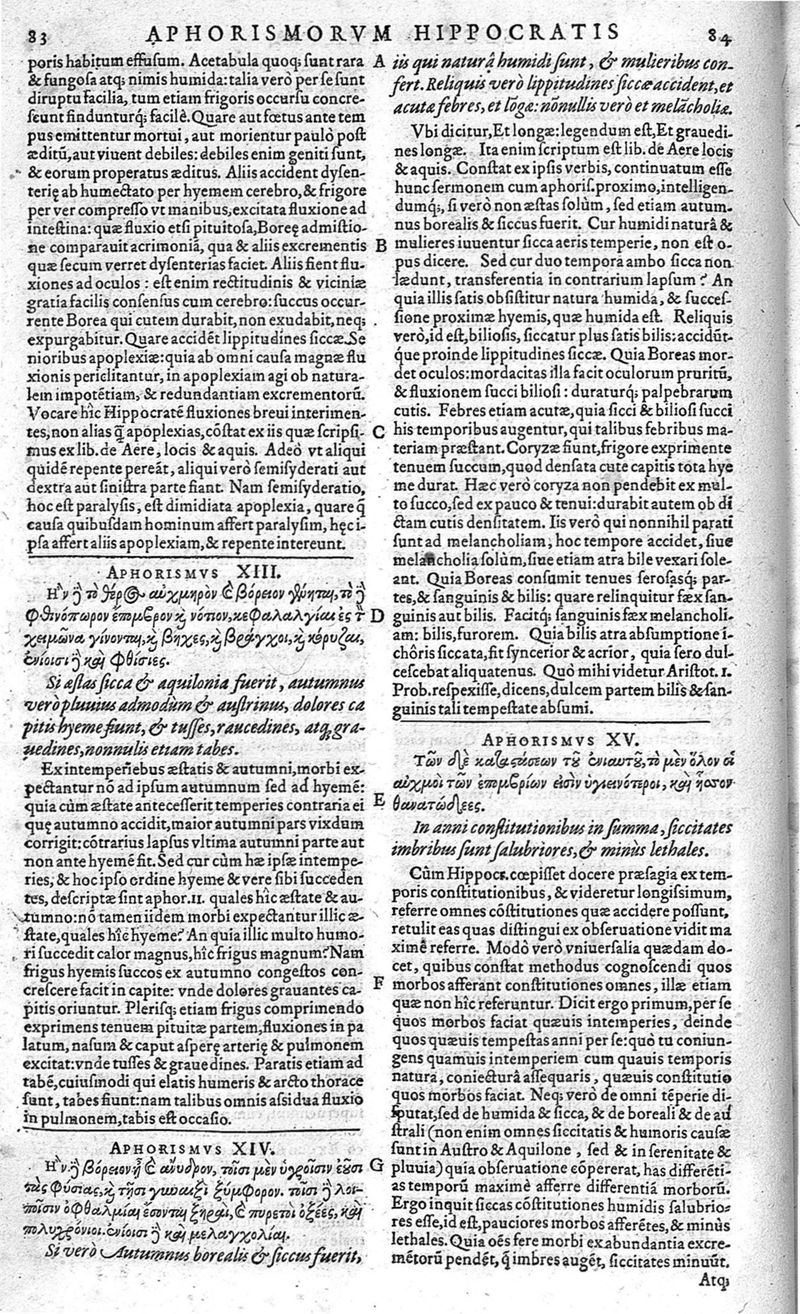 83 APHORISMORVM HIPPOCRATIS 84
poris habitum effusum. Acetabula quoq; sunt rara
& fungosa atq; nimis humida: talia verò per se sunt
diruptu facilia, tum etiam frigoris occursu concre-
scunt findunturq; facilè. Quare aut fœtus ante tem
pus emittentur mortui, aut morientur paulò post
æditũ, aut viuent debiles: debiles enim geniti sunt,
& eorum properatus æditus. Aliis accident dysen-
terię ab humectato per hyemem cerebro, & frigore
per ver compresso vt manibus, excitata fluxione ad
intestina: quæ fluxio etsi pituitosa, Boreę admistio-
ne comparauit acrimoniã, qua & aliis excrementis
quæ secum verret dysenterias faciet. Aliis fient flu-
xiones ad oculos : est enim rectitudinis & viciniæ
gratia facilis consensus cum cerebro: succus occur-
rente Borea qui cutem durabit, non exudabit, neq;
expurgabitur. Quare accidẽt lippitudines siccæ. Se
nioribus apoplexiæ: quia ab omni causa magnæ flu
xionis periclitantur, in apoplexiam agi ob natura-
lem impotẽtiam, & redundantiam excrementorũ.
Vocare hîc Hippocratẽ fluxiones breui interimen-
tes, non alias q̃ apoplexias, cõstat ex iis quæ scripsi-
mus ex lib. de Aere, locis & aquis. Adeò vt aliqui
quidẽ repente pereãt, aliqui verò semisyderati aut
dextra aut sinistra parte fiant. Nam semisyderatio,
hoc est paralysis, est dimidiata apoplexia, quare q̃
causa quibusdam hominum affert paralysim, hęc i-
psa affert aliis apoplexiam, & repente intereunt.
APHORISMVS XIII.
Ἢν ἢ τὸ θέρος αὐχμηρὸν ϗ βόρειον γένηται, τὸ ἢ
φθινόπωρον ἔπομβρον ϗ νότιον, κεφαλαλγίαι ἐς τ̀
χειμῶνα γίνονται, ϗ βῆχες, ϗ βράγχοι, ϗ κόρυζαι,
ἐνίοισι ἢ καὶ φθίσιες.
Si æstas sicca & aquilonia fuerit, autumnus
verò pluuius admodùm & austrinus, dolores ca
pitis hyeme fiunt, & tusses, raucedines, atq; gra-
uedines, nonnulis etiam tabes.
Ex intemperiebus æstatis & autumni, morbi ex-
pectantur nõ ad ipsum autumnum sed ad hyemẽ:
quia cùm æstate antecesserit temperies contraria ei
quę autumno accidit, maior autumni pars vixdum
corrigit: cõtrarius lapsus vltima autumni parte aut
non ante hyemẽ fit. Sed cur cùm hæ ipsæ intempe-
ries, & hoc ipso ordine hyeme & vere sibi succeden
tes, descriptæ sint aphor. 11. quales hîc æstate & au-
tumno: nõ tamen iidem morbi expectantur illic æ-
state, quales hîc hyeme? An quia illic multo humo-
ri succedit calor magnus, hîc frigus magnum? Nam
frigus hyemis succos ex autumno congestos con-
crescere facit in capite: vnde dolores grauantes ca-
pitis oriuntur. Plerisq; etiam frigus comprimendo
exprimens tenuem pituitæ partem, fluxiones in pa
latum, nasum & caput asperę arterię & pulmonem
excitat: vnde tusses & grauedines. Paratis etiam ad
tabẽ, cuiusmodi qui elatis humeris & arcto thorace
sunt, tabes fiunt: nam talibus omnis assidua fluxio
in pulmonem, tabis est occasio.
APHORISMVS XIV.
Ἢν ἢ βόρειον ᾖ ϗ ἄνυδρον, τοῖσι μὲν ὑγροῖσιν ἐοῦσι
τὰς φύσιας, ϗ τῇσι γυναιξὶ ξύμφορον. τοῖσι ἢ λοι-
ποῖσιν ὀφθαλμίαι ἔσονται ξηραὶ, ϗ πυρετοὶ ὀξέες, καὶ
πολυχρόνιοι. ἐνίοισι ἢ καὶ μελαγχολίαι.
Si verò Autumnus borealis & siccus fuerit,
A iis qui naturâ humidi sunt, & mulieribus con-
fert. Reliquis verò lippitudines siccæ accident, et
acutæ febres, et lõgæ: nõnullis verò et melãcholiæ.
Vbi dicitur, Et longæ: legendum est, Et grauedi-
nes longæ. Ita enim scriptum est lib. de Aere locis
& aquis. Constat ex ipsis verbis, continuatum esse
hunc sermonem cum aphoris. proximo, intelligen-
dumq;, si verò non æstas solùm, sed etiam autum-
nus borealis & siccus fuerit. Cur humidi naturâ &
B mulieres iuuentur sicca aeris temperie, non est o-
pus dicere. Sed cur duo tempora ambo sicca non
lædunt, transferentia in contrarium lapsum ? An
quia illis satis obsistit natura humida, & succes-
sione proximæ hyemis, quæ humida est. Reliquis
verò, id est, biliosis, siccatur plus satis bilis: accidũt-
q́ue proinde lippitudines siccæ. Quia Boreas mor-
det oculos: mordacitas illa facit oculorum pruritũ,
& fluxionem succi biliosi : duraturq; palpebrarum
cutis. Febres etiam acutæ, quia sicci & biliosi succi
C his temporibus augentur, qui talibus febribus ma-
teriam præstant. Coryzæ fiunt, frigore exprimente
tenuem succum, quod densata cute capitis tota hye
me durat. Hæc verò coryza non pendebit ex mul-
to succo, sed ex pauco & tenui: durabit autem ob di
ctam cutis densitatem. Iis verò qui nonnihil parati
sunt ad melancholiam, hoc tempore accidet, siue
melancholia solùm, siue etiam atra bile vexari sole-
ant. Quia Boreas consumit tenues serosasq; par-
tes, & sanguinis & bilis: quare relinquitur fæx san-
D guinis aut bilis. Facitq; sanguinis fæx melancholi-
am: bilis, furorem. Quia bilis atra absumptione i-
chôris siccata, fit syncerior & acrior, quia sero dul-
cescebat aliquatenus. Quò mihi videtur Aristot. 1.
Prob. respexisse, dicens, dulcem partem bilis & san-
guinis tali tempestate absumi.
APHORISMVS XV.
Τῶν δὲ καταστάσεων τοῦ ἐνιαυτοῦ, τὸ μὲν ὅλον οἱ
αὐχμοὶ τῶν ἐπομβρίων εἰσὶν ὑγιεινότεροι, καὶ ἧσσον
E θανατώδεες.
In anni constitutionibus in summa, siccitates
imbribus sunt salubriores, & minùs lethales.
Cûm Hippocr. cœpisset docere præsagia ex tem-
poris constitutionibus, & videretur longissimum,
referre omnes cõstitutiones quæ accidere possunt,
retulit eas quas distingui ex obseruatione vidit ma
ximè referre. Modò verò vniuersalia quædam do-
cet, quibus constat methodus cognoscendi quos
F morbos afferant constitutiones omnes, illæ etiam
quæ non hîc referuntur. Dicit ergo primum, per se
quos morbos faciat quæuis intemperies, deinde
quos quæuis tempestas anni per se: quò tu coniun-
gens quamuis intemperiem cum quauis temporis
natura, coniecturâ assequaris, quæuis constitutio
quos morbos faciat. Neq; verò de omni tẽperie di-
sputat, sed de humida & sicca, & de boreali & de au
strali (non enim omnes siccitatis & humoris causæ
sunt in Austro & Aquilone , sed & in serenitate &
G pluuia) quia obseruatione cõpererat, has differẽti-
as temporũ maximè afferre differentiã morborũ.
Ergo inquit siccas cõstitutiones humidis salubrio-
res esse, id est, pauciores morbos afferẽtes, & minùs
lethales. Quia oẽs fere morbi ex abundantia excre-
mẽtorũ pendẽt, q̃ imbres augẽt, siccitates minuũt.
Atq;